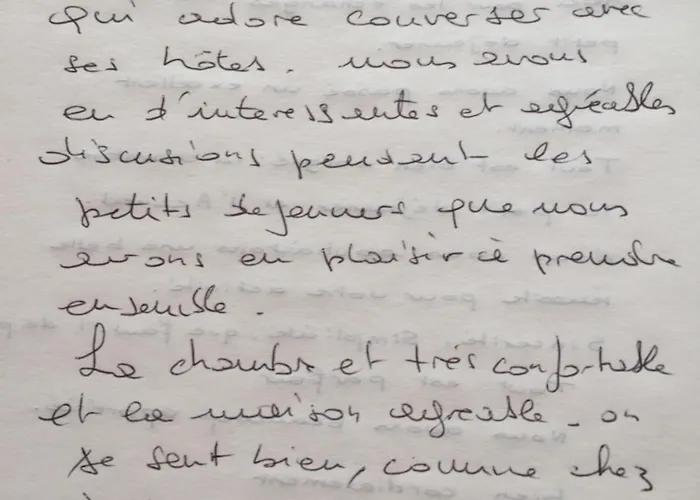 qui adore converser avec
ses hôtes. nous avons
eu d'interessantes et agréables
discusions pendant les
petits dejeuners que nous
avons eu plaisir à prendre
ensemble.
La chambre et très confortable
et la maison agréable - on
se sent bien, comme chez